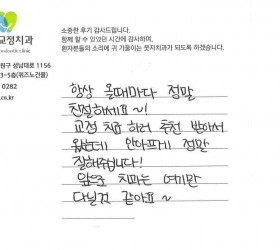 교정치과
orthodontic clinic
원구 성남대로 1156
3-5층(위즈노건물)
0282
co.kr
소중한 후기 감사드립니다.
함께 할 수 있었던 시간에 감사하며,
환자분들의 소리에 귀 기울이는 웃자치과가 되도록 하겠습니다.
항상 올때마다 정말
친절하세요~!
교정 치료 하러 추천 받아서
왔는데 안아프게 정말
잘해주십니다!
앞으로 치과는 여기만
다닐것 같아요~